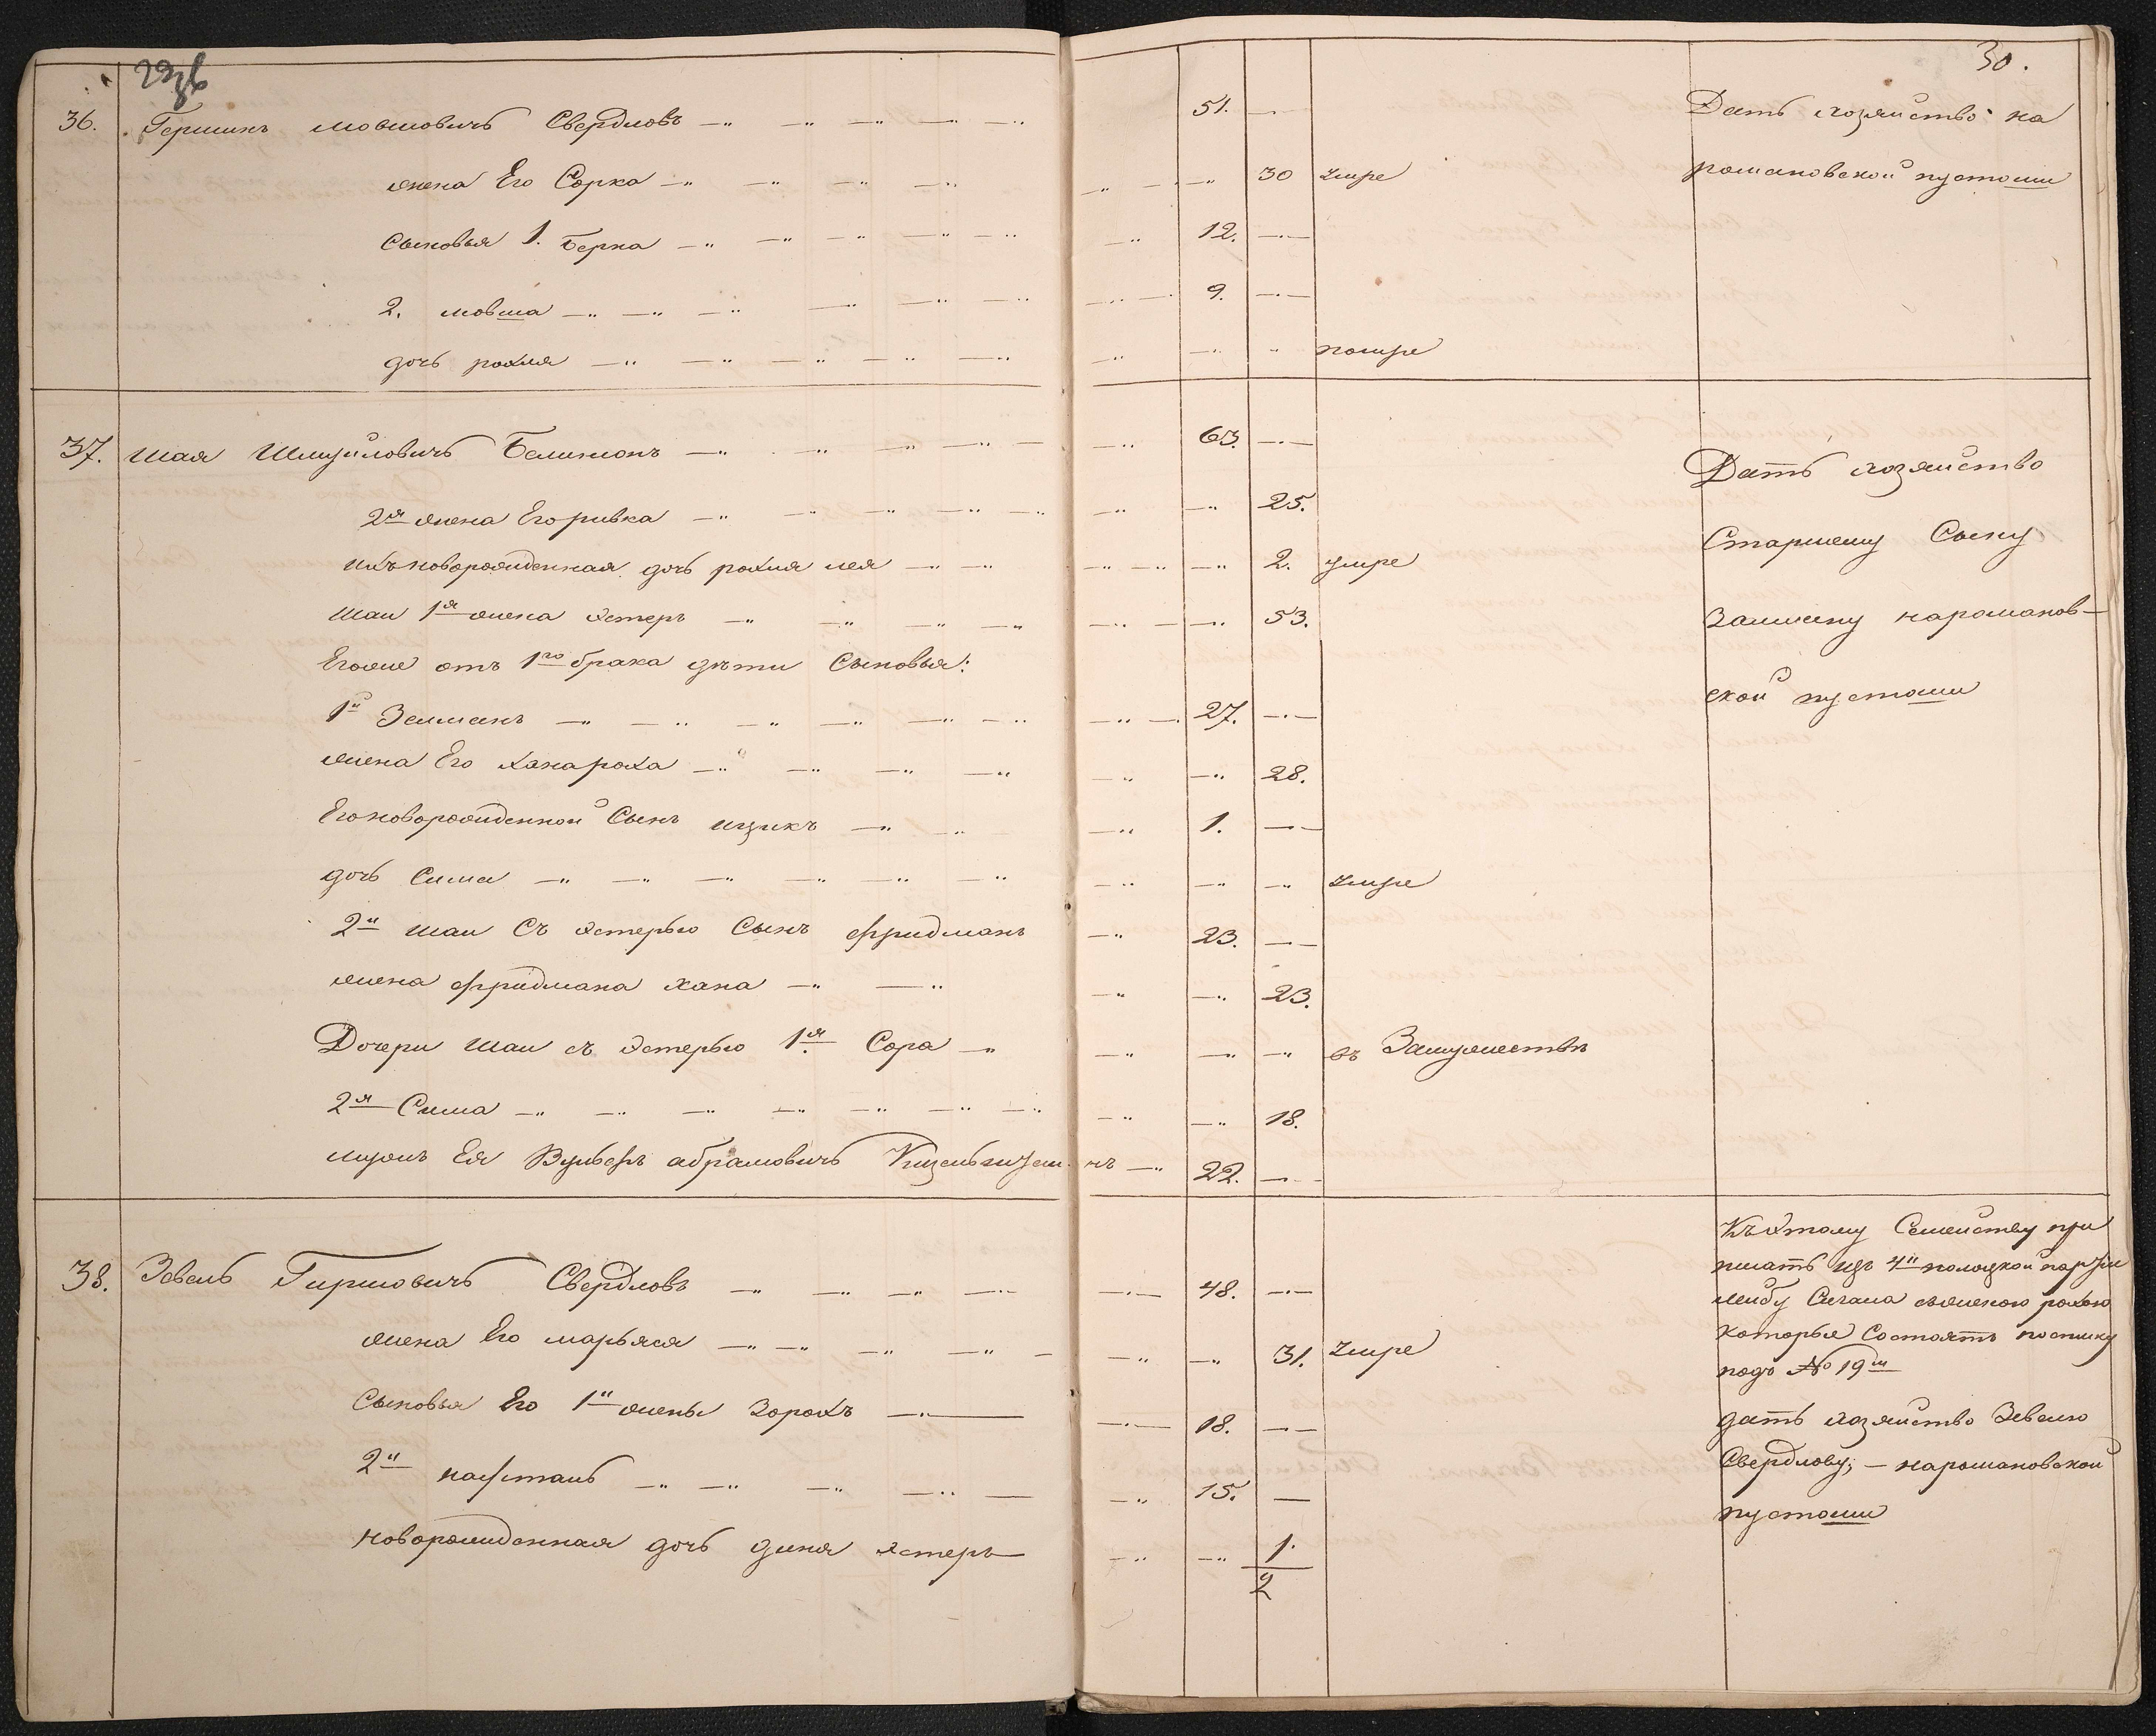 30.
36. Гершинъ мовшовичъ Свердловъ 51. Дать хозяйство на
жена Его Сорка 30 умре романовской пустоши
Сыновья 1. Берка 12.
2. мовша 9.
дочь рохля помре
37. Шая Шмуйловичъ Белинконъ 63. Дать хозяйство
2я жена Его ривка 25. Старшему Сыну
ихъ новорожденная дочь рохля лея 2. умре Залману на романов-
Шаи 1я жена эстеръ 53. ской пустоши
Егоже отъ 1го брака дѣти Сыновья:
1й Залманъ 27.
жена Его хана роха 28.
Его новорожденной Сынъ ицикъ 1.
дочь Сима умре
2й шаи Съ эстерью Сынъ фридманъ 23.
жена фридмана хана 23.
Дочери шаи съ эстерью 1я Сора въ Замужествѣ
2я Сима 18.
мужъ Ея Вульфъ абрамовичъ 22.
38. Зевель Гиршовичъ Свердловъ 48.
жена Его марьяся 31. умре
Сыновья Его 1й жены Зорохъ 18.
2й нафталь 15.
новорожденная дочь дина эстеръ 1.
2
Къ этому Семейству при
писать изъ 4й полоцкой партіи
лейбу Сигала съ женою рохою
которые Состоятъ по списку
подъ № 19м
дать хозяйство Зевелю
Свердлову; — на романовской
пустоши